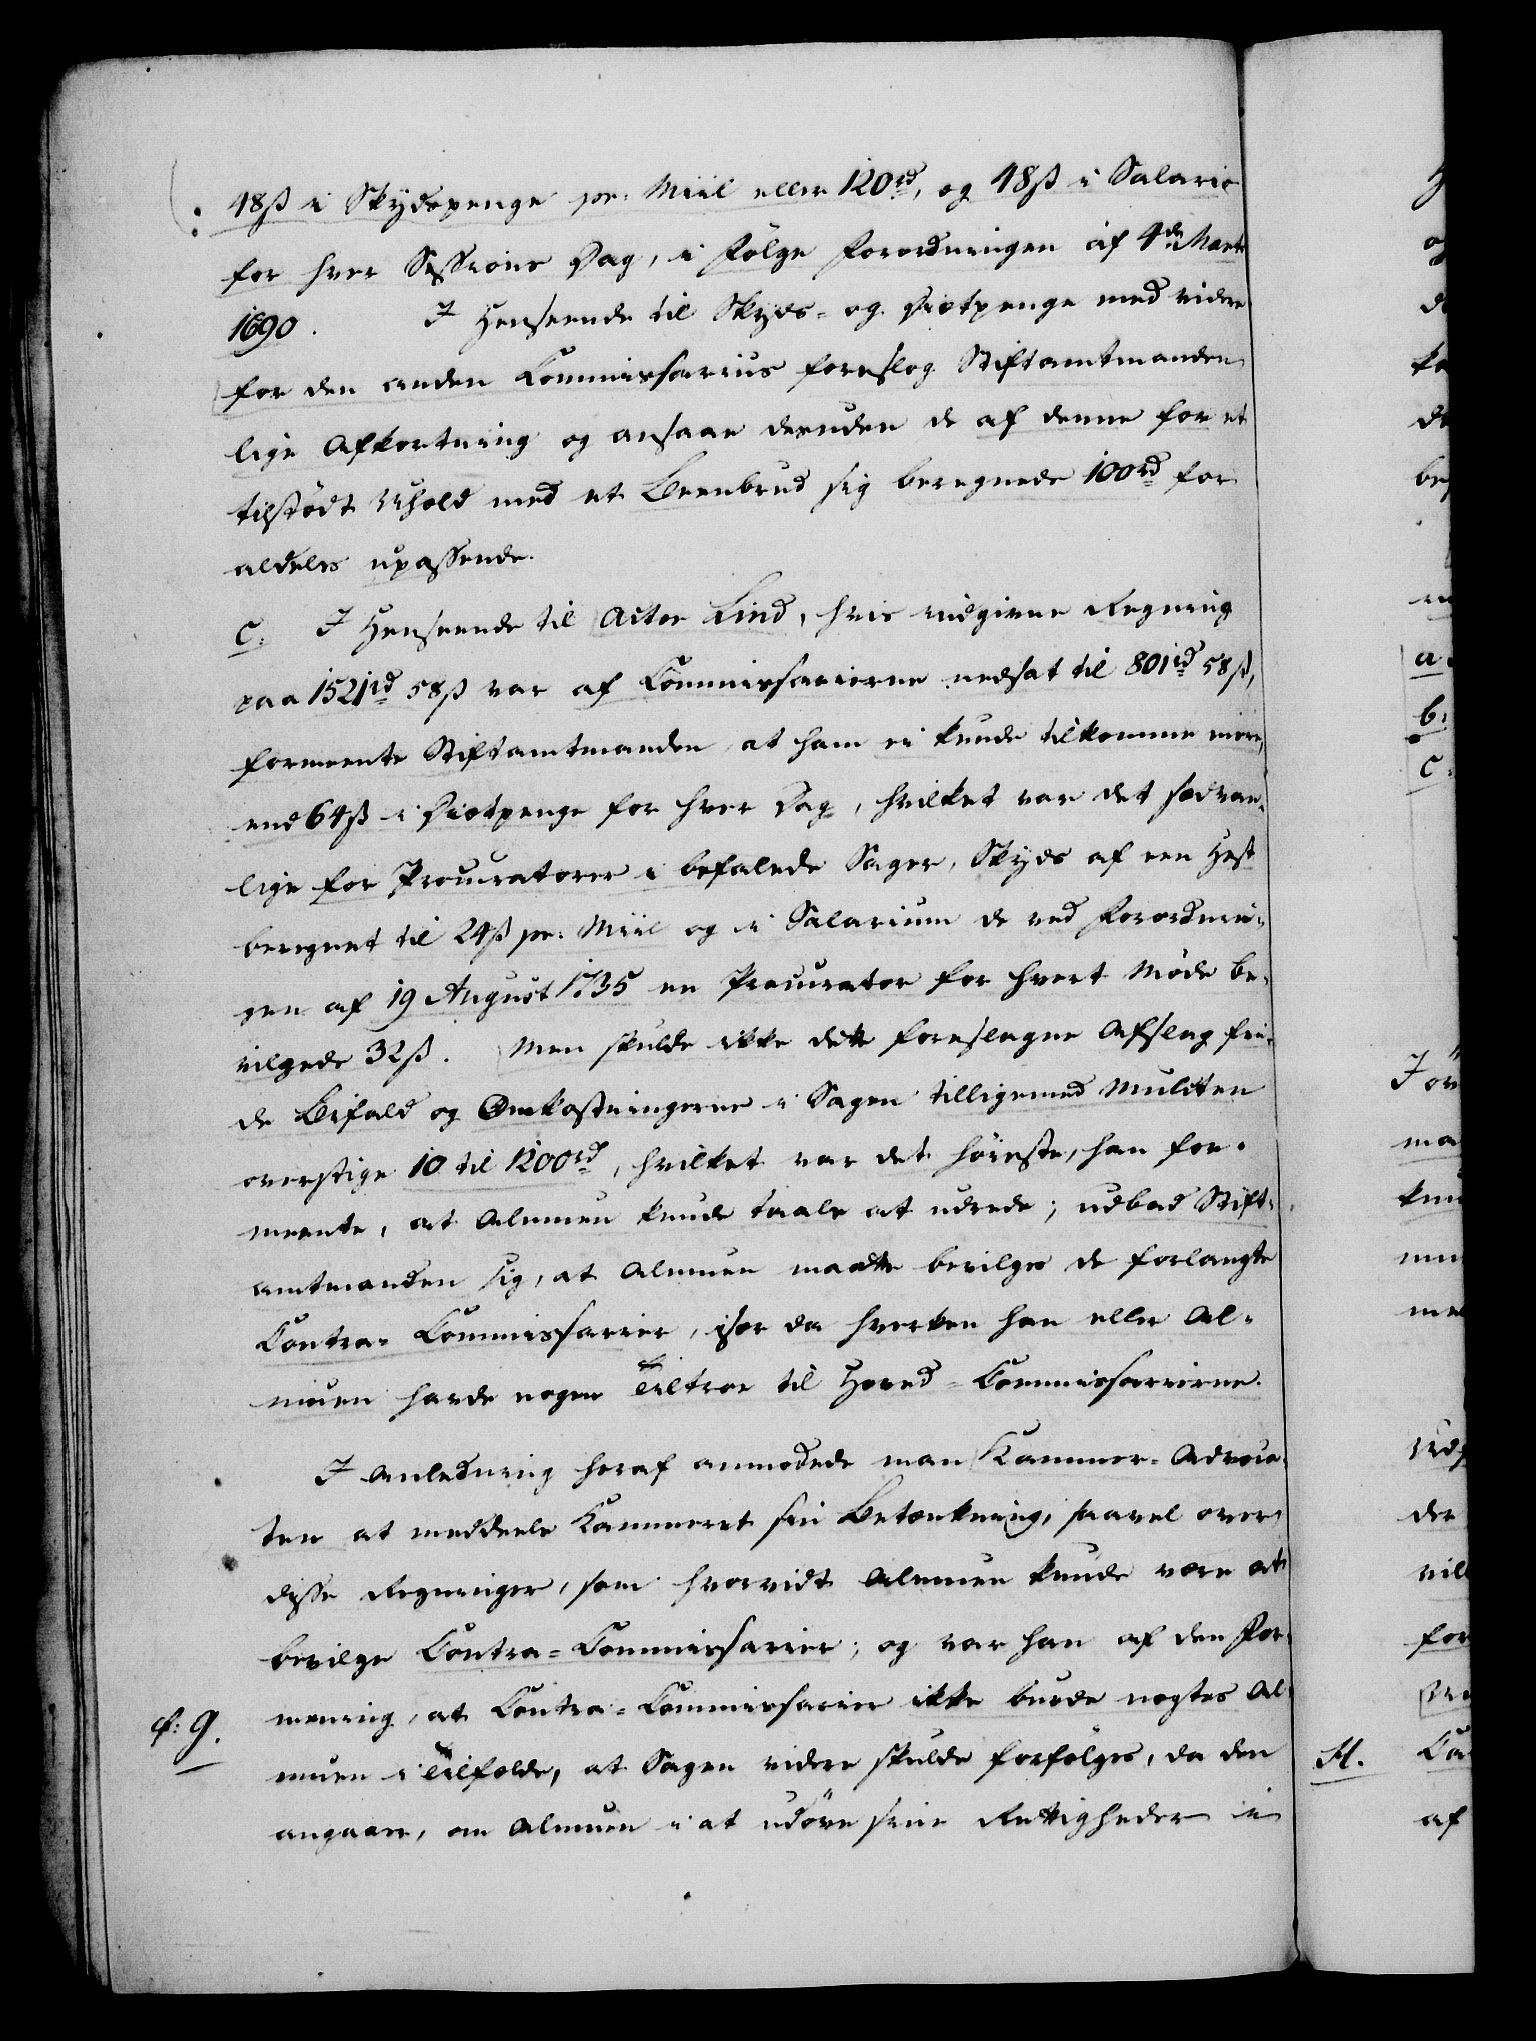 48ß i Skydspenge pr: Miil eller 120rd, og 48ß i Salarie
for hver Sessions Dag, i Følge Forordningen af 4de Marts
1690. I Henseende til Skyds- og Diætpenge med videre
for den anden Commissarius foreslog Stiftamtmanden
lige Afkortning og ansaae desuden de af denne for et
tilstødt Uheld med et Beenbrud sig beregnede 100rd for
aldeles upassende.
C. I Henseende til Actor Lind, hvis indgivne Regning
paa 1521rd 58ß var af Commissarierne nedsat til 801rd 58ß,
formeente Stiftamtmanden at ham ei kunde tilkomme mere,
end 64ß i Diætpenge for hver Dag, hvilket var det sædvan-
lige for Procuratorer i befalede Sager, Skyds af een Hest
beregnet til 24ß pr: Miil og i Salarium de ved Forordnin-
gen af 19 August 1735 en Procurator for hvert Møde be-
vilgede 32ß. Men skulde ikke dette foreslagne Afslag fin-
de Bifald og Omkostningerne i Sagen tilligemed Mulcten
overstige 10 til 1200rd, hvilket var det høieste, han for-
meente, at Almuen kunde taale at udrede; udbad Stift-
amtmanden sig, at Almuen maatte bevilges de forlangte
Contra- Commissarier, især da hverken han eller Al-
muen havde nogen Tiltroe til Hoved- Commissarierne.
I Anledning heraf anmodede man Kammer- Advoca-
ten at meddeele Kammeret sin Betænkning, saavel over
disse Regninger, som hvorvidt Almuen kunde være at
bevilge Contra- Commissarier; og var han af den For-
mening, at Contra- Commissarier ikke burde nægtes Al-
f: 9.
muen i Tilfælde, at Sagen videre skulde forfølges, da den
angaaer, om Almuen i at udøve sine Rettigheder i
a.
b.
c.
H.
af